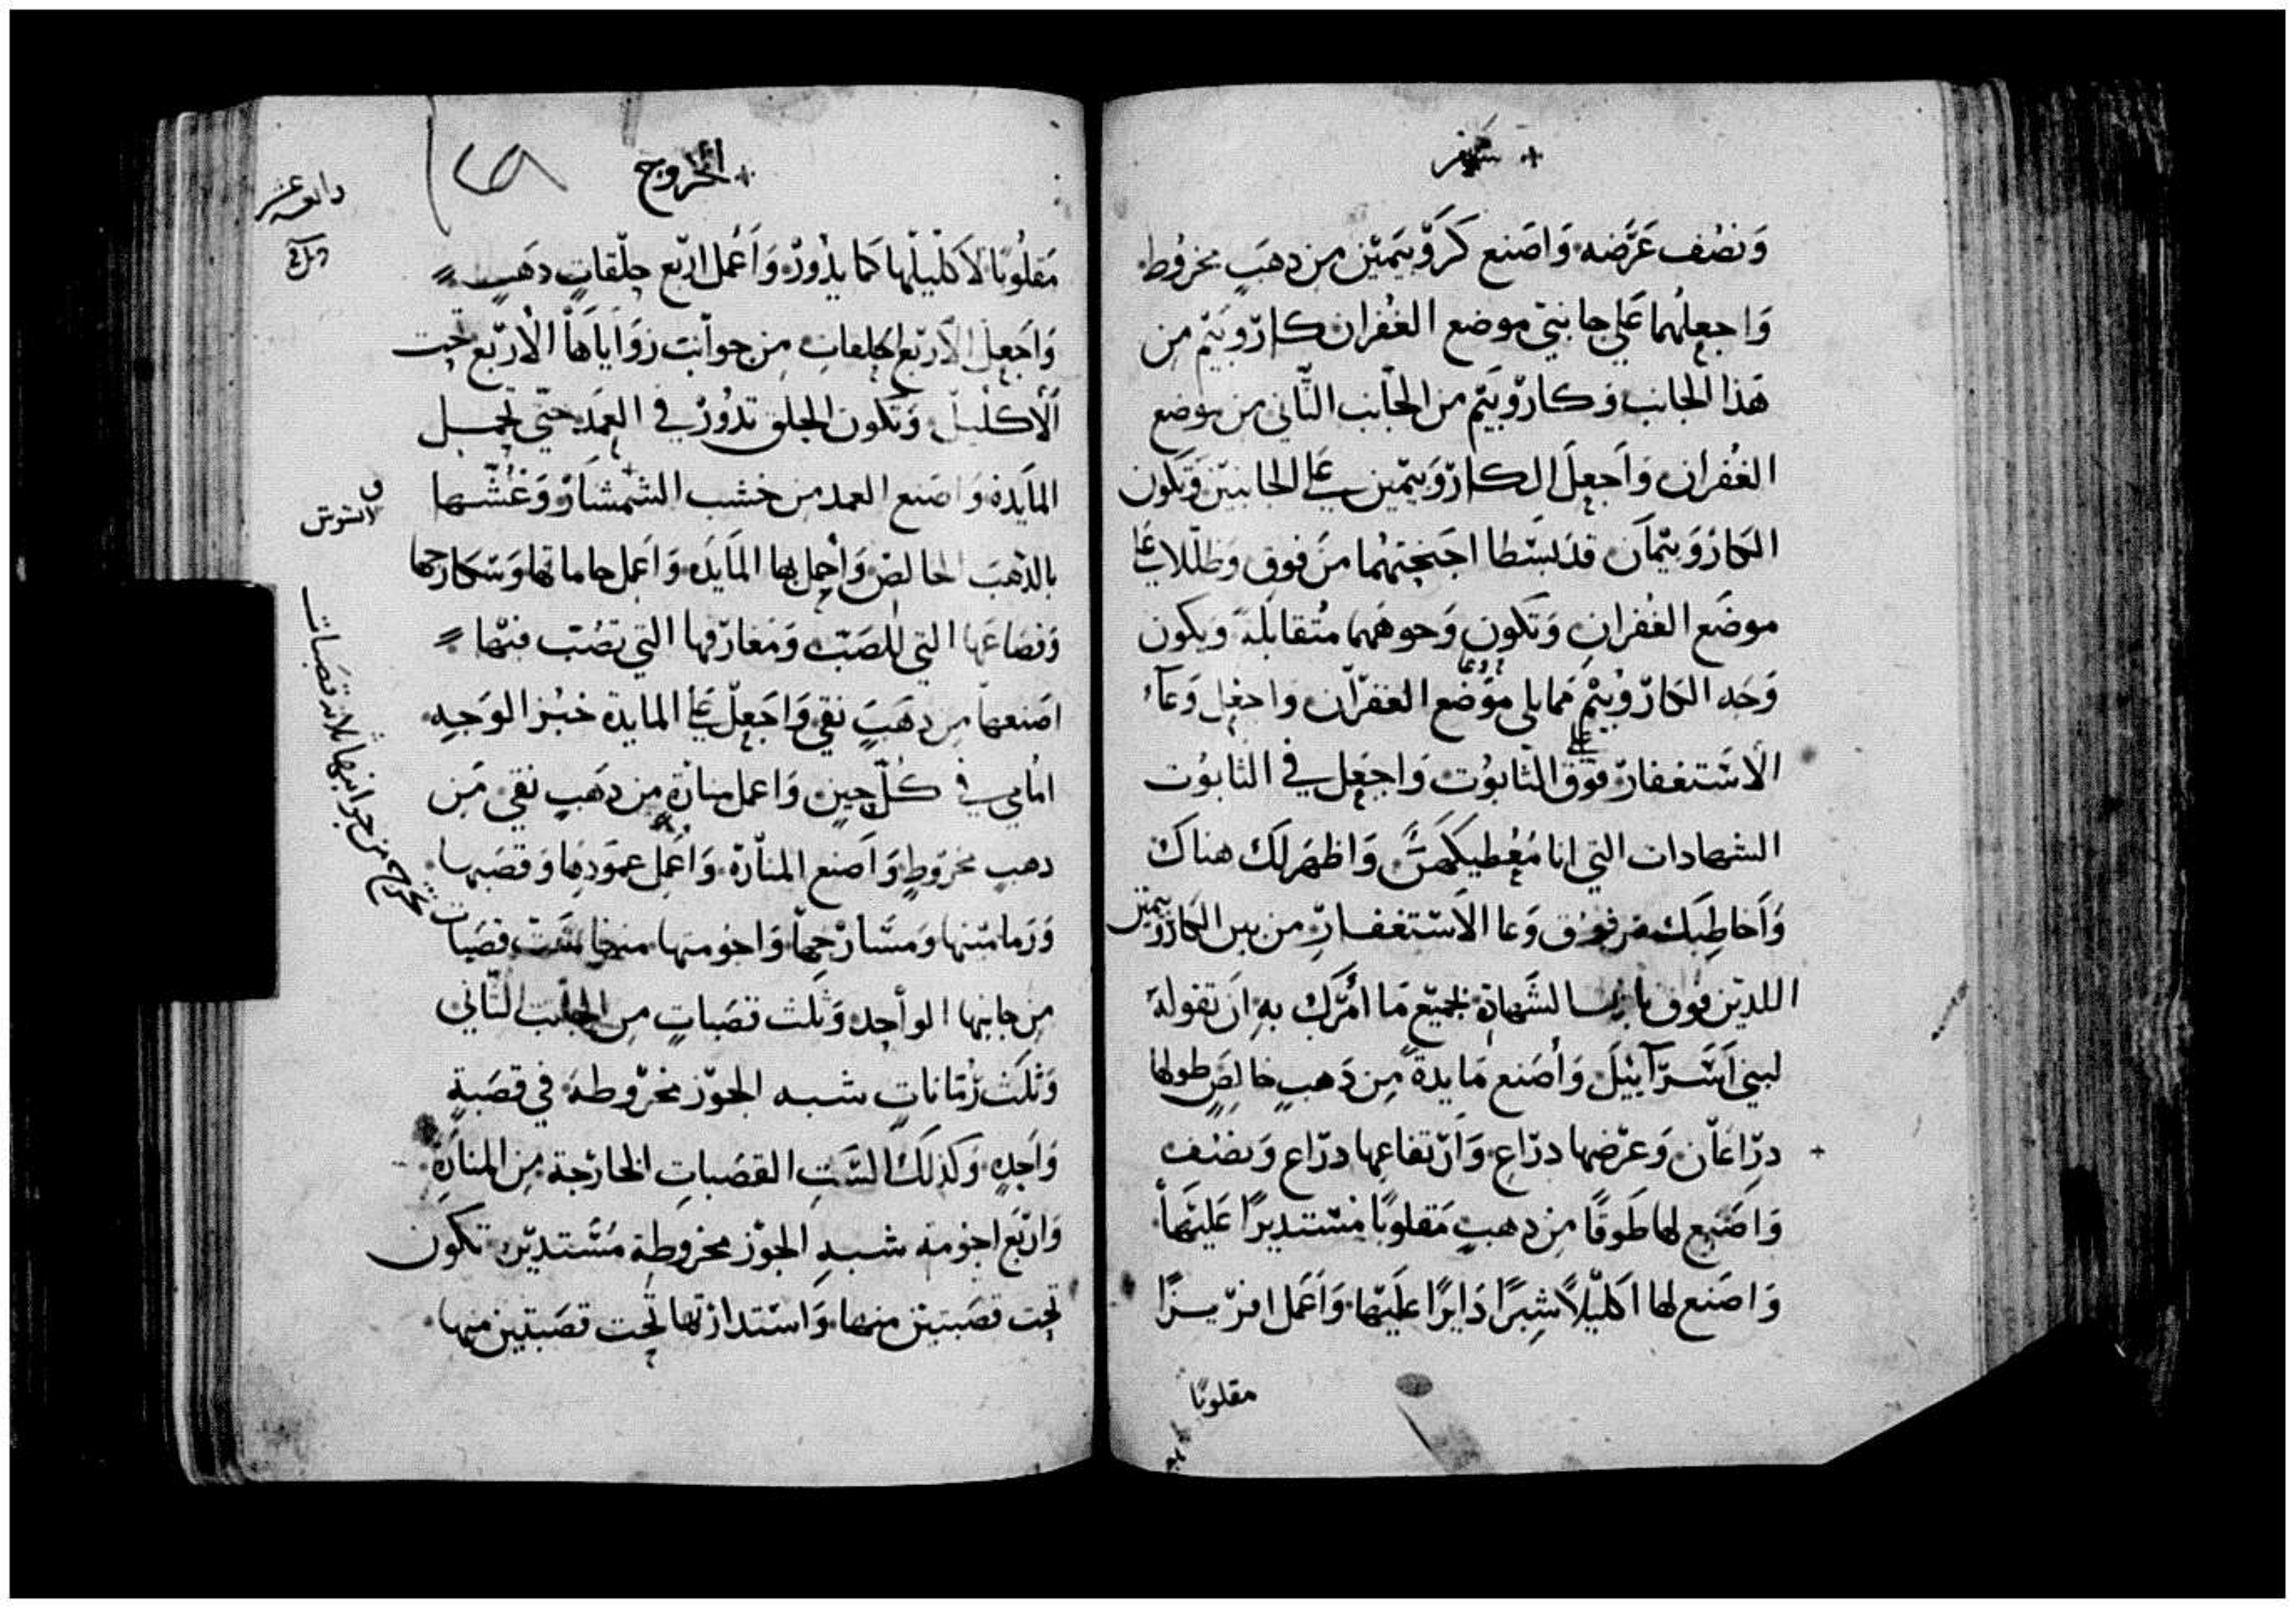 سفر
وَنصُف عَرَّضه وَاصَنع كَرَوّبيَميّن مِن دهبٍ مخروُط
وَاجعلهُما عَلي جانبيّ موضع الغُفران كاروّبيَم من
هَذا الجانب وَكاروّبيَم من الجانب الثّاني من موضع
الغُفران وَاَجعلَ الكاروّبيَميّن علي الجانبيّن وَتكون
الكاروَبيمَان قدَ بسَّطا اجنحتهُما منَ فوق وَظللا علي
موضَع الغُفرانِ وَتكَون وَجوههُما مُتقابلَة وَيكون
وَجه الكاروّبيُم مما يلي موَضع الغفرّان واجعل وَعآء
الاسَتغفار فوَق التابوُت وَاجعَل في التابوُت
الشهادات التي انا مُعُطيكَهنَّ وَاظهَر لكَ هناكَ
وَاَخاطِبَك من فوق وَعا الاَسَتغفارّ من بين الكاروبيمين
اللديّن فوق تابوت الشَهادة بجميَع مَا اَمُرّكَ بهِ اَن تقولهَ
لبني اسَرَآئيلَ وَاُصَنع مَايدة مِن دَهبٍ خالصٍ طولها
درِّاعَان وَعرّضها درّاع وَاَرّتفاعِها درّاع وَنصُف
وَاصَنع لها طَوقًا مِن دهبٍ مَقلوبًا مسَتديرًا عَليَهاَ
وَاصَنع لها اكليَلاً شِبرًا دَايرًا علَيَها وَاَعَمل افرّيزًا
مقلوبًا
الخروج
مَقلُوبًا لاَكلّيلها كمَا يدُورّ وَاَعُمل ارّبع حلّقاتٍ دهَبٍ
وَاَجَعلّ الاَرّبع الحلقاتِ مِن جوآنبَ زوَايَاهَا الاَرّبع تحت
اَلاكليَل وَتكون الحلق تدوُرّ في العمَد حتّي تحمل
المآيَدة وَاصَنع العمد من خشب الشمَشَاوّ وَغَشّها
بالذهبَ الخالصِ وَاحمل بها المآيَده وَاعمل جاماتها وَسَكارجها
وَقصَاعَها التي للصَبّ وَمغارّفها التي تصُبّ فيَها
اصَنعها من دهَبَ نقي وَاجَعلّ علي المايدة خبُز الوَجه
امامي في كُلّ حينٍ وَاعمل منارّة مِن دهَبٍ نقي مَن
دهبٍ مخروَطٍ وَاَصنع المنارّة وَاَعُمل عمَودها وَقصَبها
وَرمامَنها وَمسَارّجها وَاخومتها منها ستَ قصَبات
مِن جانبها الوأحِد وَثلَث قصَباتٍ من الجانب الثّاني
وَثلَث رُمّاناتٍ شبه الجوّز مخرّوطة في قصَبةٍ
وَاحَدِه وَكذلَك السَتِ القصَباتِ الخارّجة من المنارةَ
وَارّبعَ اخومة شبهِ الجوّز مخروطِة مُسَتديرّه تكوَن
تحت قصَبتين منها وَاسَتدارّتها تحت قصَبتين منها
رابعة عشر
السوس
تخرج من جوانبها ثلاثه قصَبات